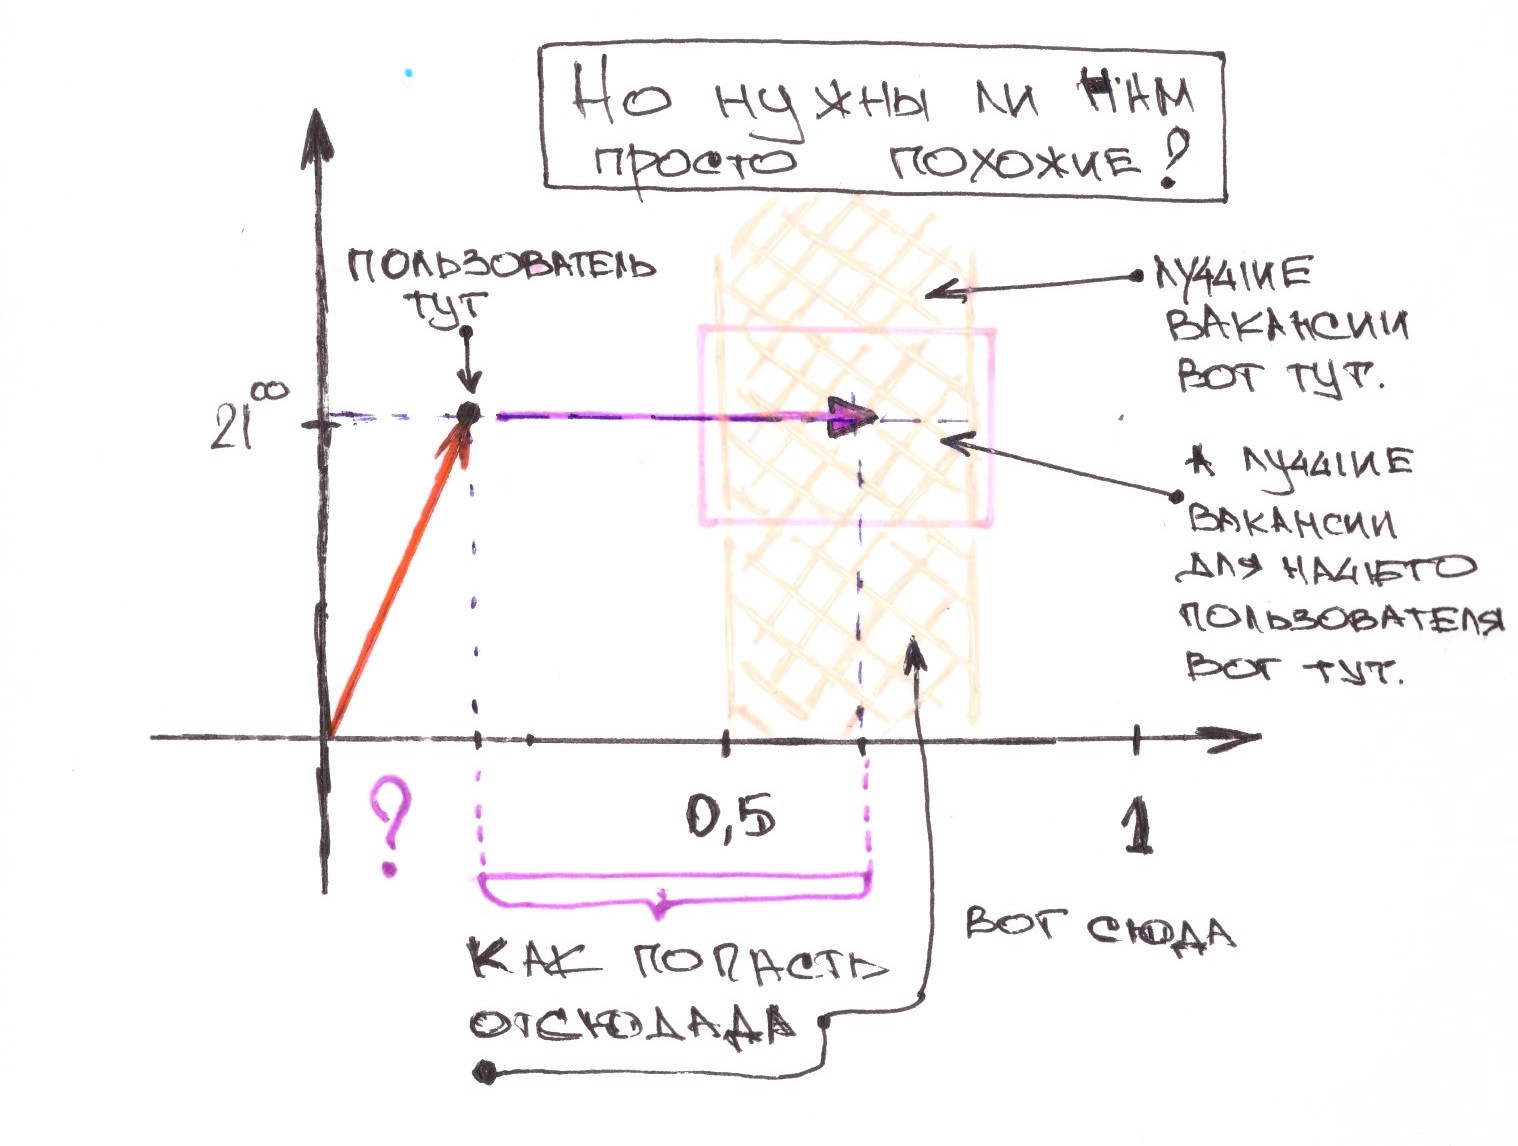 Но нужны ли нам
просто похожие?
пользователь
тут
21⁰⁰
лучшие
вакансии
вот тут.
А лучшие
вакансии
для нашего
пользователя
вот тут.
?
0,5
1
вот сюда
как попасть
отсюдада